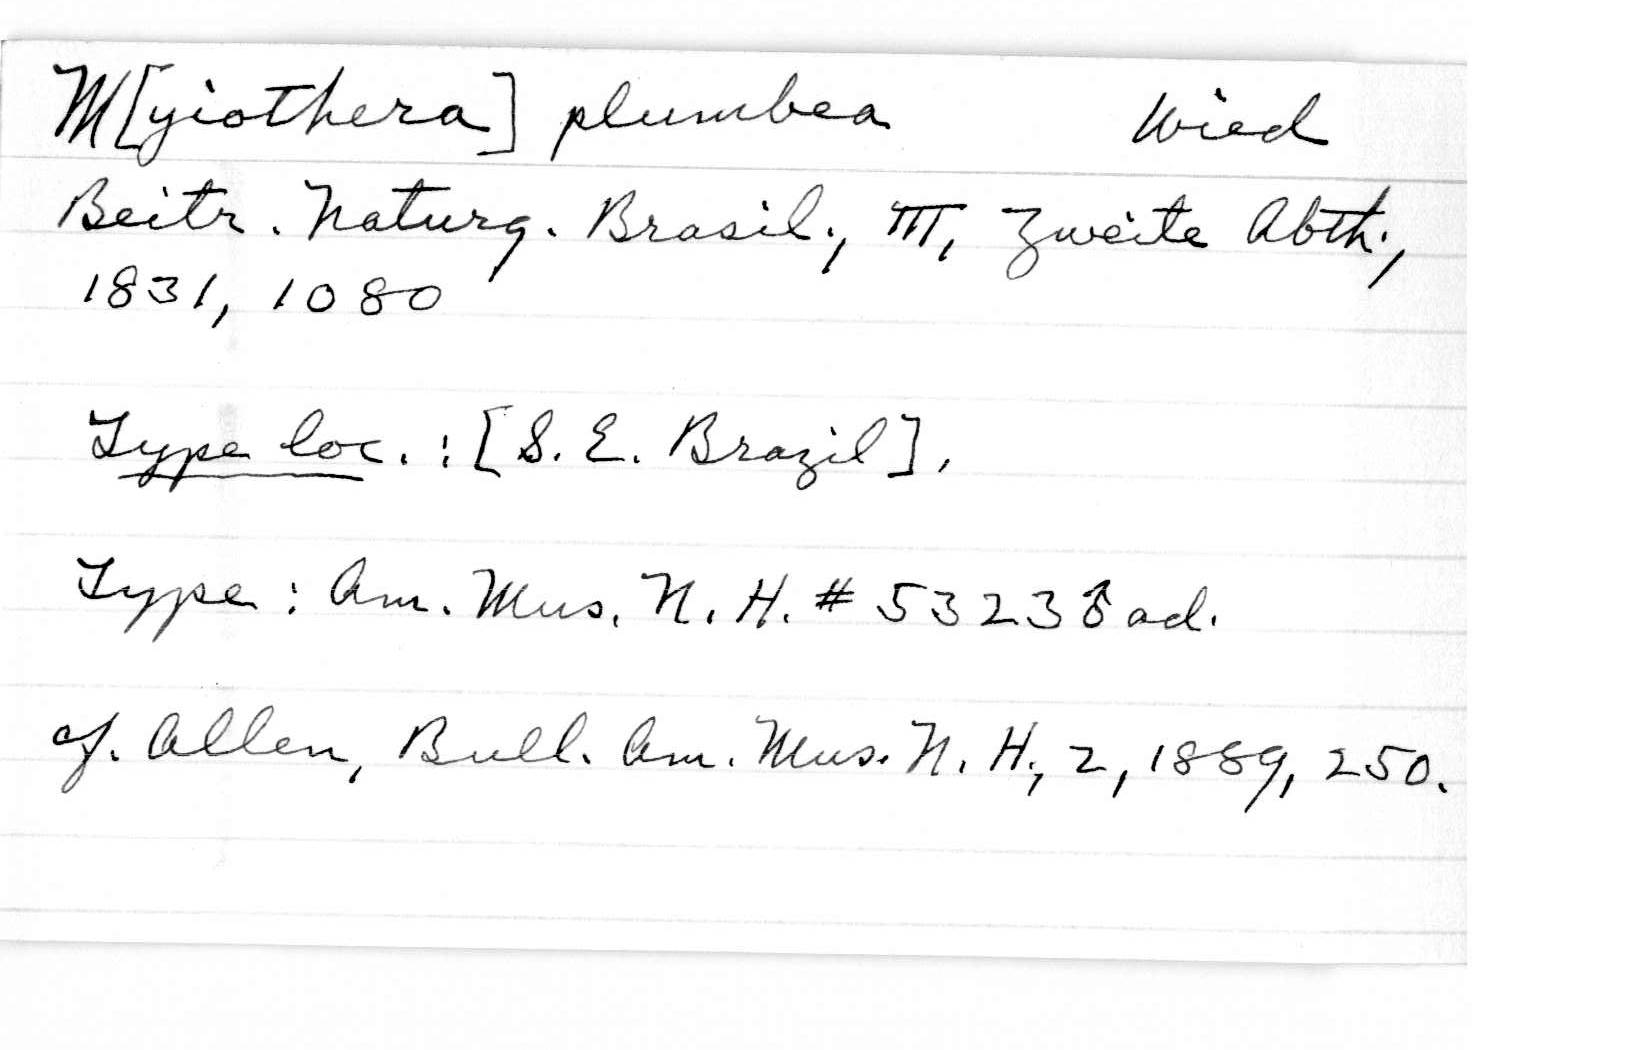 M[yiothera] plumbea Wied
Beitr. Naturg. Brasil., III, Zweite Abth.,
1831, 1080
Type loc. : [S. E. Brazil].
Type : Am. Mus. N. H. # 5323 ♂ ad.
cf. Allen, Bull. Am. Mus. N. H., 2, 1889, 250.